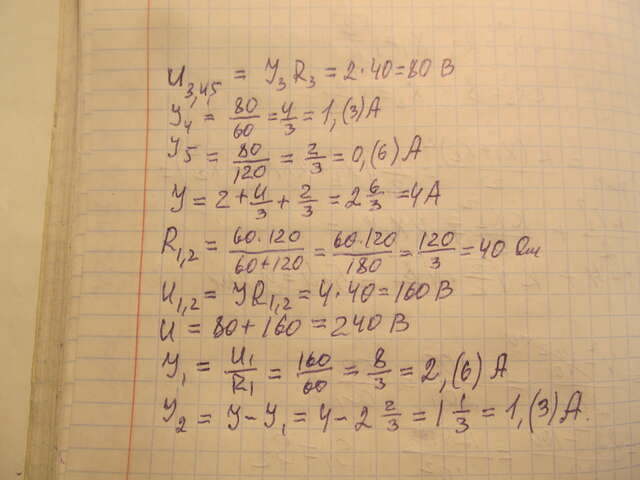 U₃,₄,₅ = У₃ R₃ = 2·40 = 80 В
У₄ = 80/60 = 4/3 = 1,(3) А
У₅ = 80/120 = 2/3 = 0,(6) А
У = 2 + 4/3 + 2/3 = 2 6/3 = 4 А
R₁,₂ = 60·120/60+120 = 60·120/180 = 120/3 = 40 Ом
U₁,₂ = У R₁,₂ = 4·40 = 160 В
U = 80 + 160 = 240 В
У₁ = U₁/R₁ = 160/60 = 8/3 = 2,(6) А
У₂ = У - У₁ = 4 - 2 2/3 = 1 1/3 = 1,(3) А.